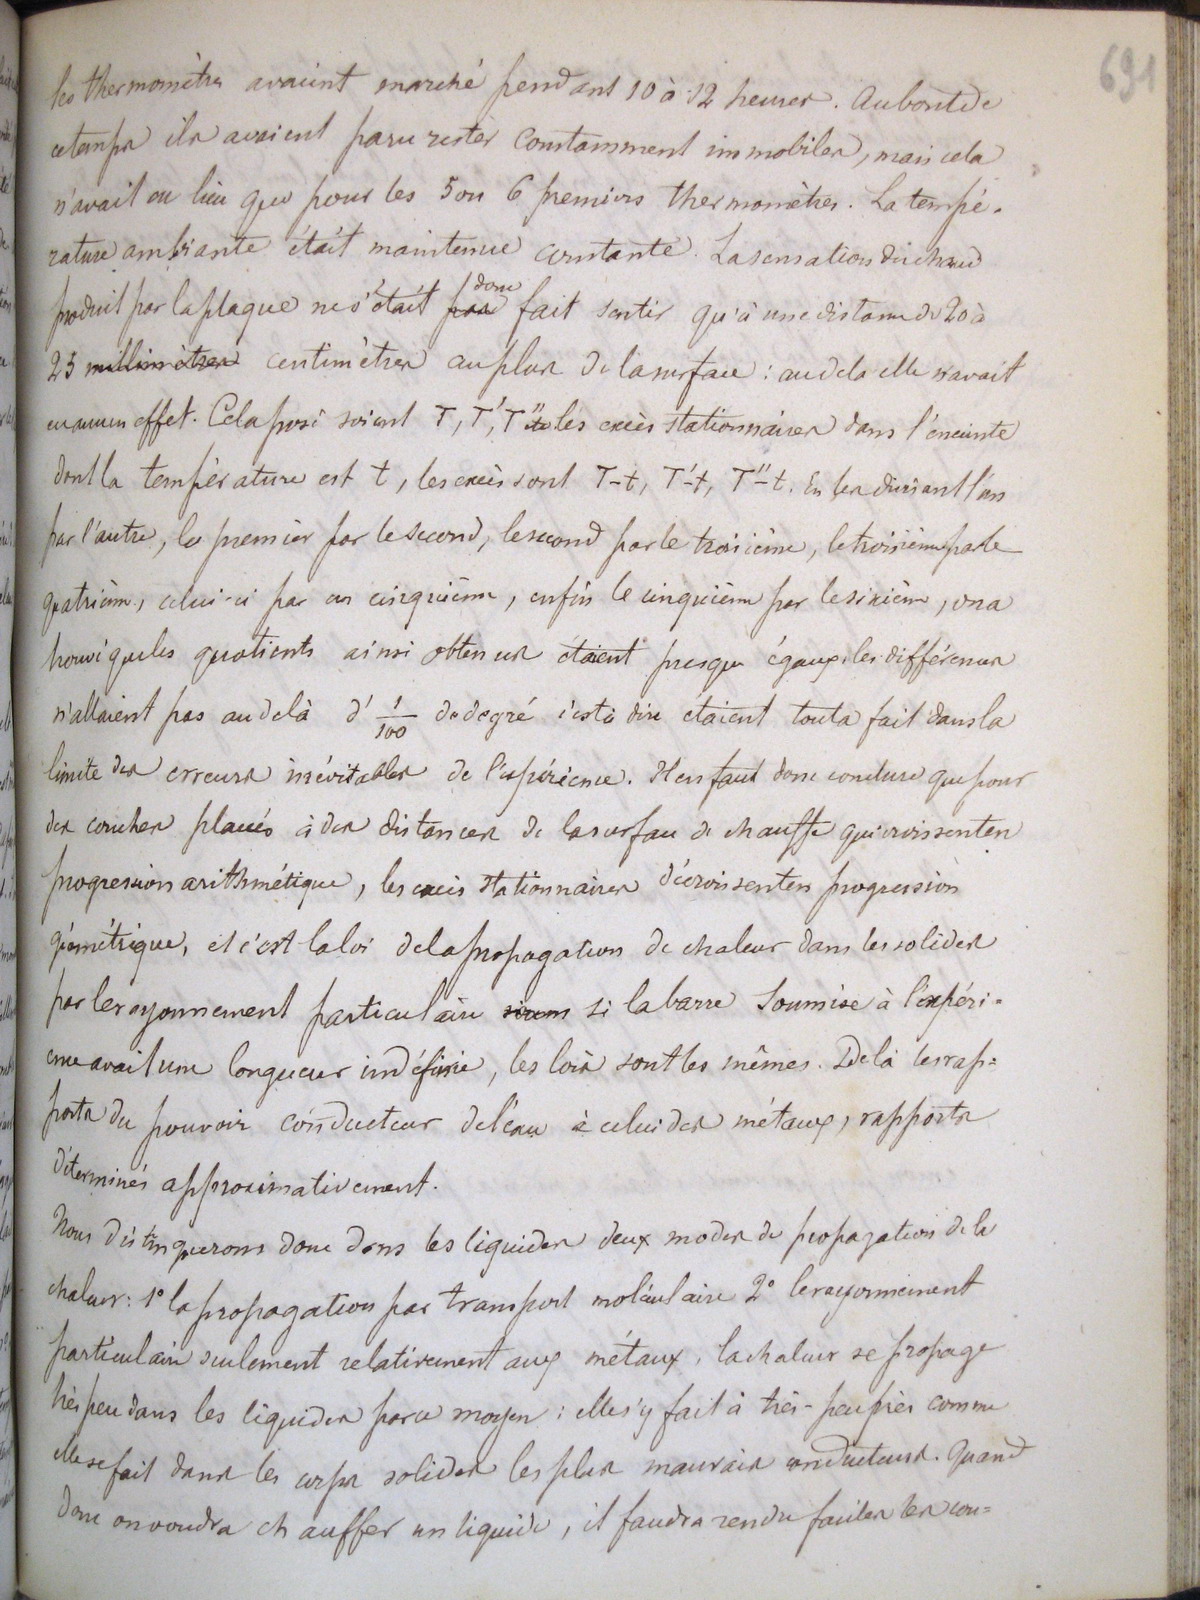 691
les thermomètres avaient marché pendant 10 à 12 heures. Au bout de
ce temps ils avaient paru rester constamment immobiles, mais cela
n'avait eu lieu que pour les 5 ou 6 premiers thermomètres. La tempé-
rature ambiante était maintenue constante. La sensation du chaud
produit par la plaque ne s'était pas donc fait sentir qu'à une distance de 20 à
25 millimètres centimètres au plus de la surface : au delà elle n'avait
eu aucun effet. Cela posé soient T, T', T'' les excès stationnaires dans l'enceinte
dont la température est t, les excès sont T-t, T'-t, T''-t. En les divisant l'un
par l'autre, le premier par le second, le second par le troisième, le troisième par le
quatrième, celui-ci par un cinquième, enfin le cinquième par le sixième, on a
trouvé que les quotients ainsi obtenus étaient presque égaux, les différences
n'allaient pas au delà d' 1/100 de degré c'est à dire étaient tout à fait dans la
limite des erreurs inévitables de l'expérience. Il en faut donc conclure que pour
des couches placés à des distances de la surface de chauffe qui croissent en
progression arithmétique, les excès stationnaires décroissent en progression
géométrique, et c'est la loi de la propagation de chaleur dans les solides
par le rayonnement particulaire si la barre soumise à l'expéri-
ence avait une longueur indéfinie, les lois sont les mêmes. De là les rap-
ports du pouvoir conducteur de l'eau à celui des métaux, rapports
déterminés approximativement.
Nous distinguerons donc dans les liquides deux modes de propagation de la
chaleur : 1° la propagation par transport moléculaire 2° le rayonnement
particulaire seulement relativement aux métaux, la chaleur se propage
très peu dans les liquides par ce moyen : elle s'y fait à très-peu près comme
elle se fait dans les corps solides les plus mauvais conducteurs. Quand
donc on voudra chauffer un liquide, il faudra rendre faciles les cou-